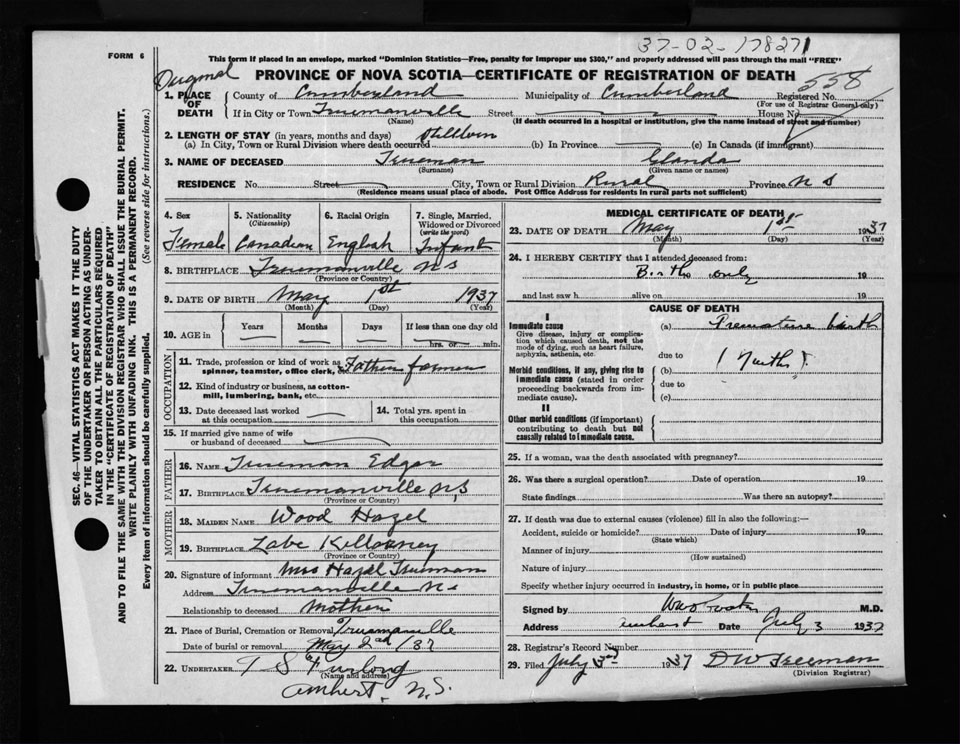 37-02-178271
FORM 6
This form if placed in an envelope, marked "Dominion Statistics—Free, penalty for improper use $300," and properly addressed will pass through the mail "FREE"
Original
PROVINCE OF NOVA SCOTIA—CERTIFICATE OF REGISTRATION OF DEATH
558
1. PLACE OF DEATH
County of Cumberland Municipality of Cumberland Registered No.
(For use of Registrar General only)
If in City or Town Truemanville Street House No.
(Name) (If death occurred in a hospital or institution, give the name instead of street and number)
2. LENGTH OF STAY (in years, months and days)
(a) In City, Town or Rural Division where death occurred Stillborn (b) In Province (c) In Canada (if immigrant)
3. NAME OF DECEASED Trueman Glanda
(Surname) (Given name or names)
RESIDENCE No. Street City, Town or Rural Division Rural Province N S
(Residence means usual place of abode. Post Office Address for residents in rural parts not sufficient)
4. Sex 5. Nationality (Citizenship) 6. Racial Origin 7. Single, Married, Widowed or Divorced (write the word)
Female Canadian English Infant
8. BIRTHPLACE Truemanville N S
(Province or Country)
9. DATE OF BIRTH May 1st 1937
(Month) (Day) (Year)
10. AGE in Years Months Days If less than one day old
hrs. or min.
OCCUPATION
11. Trade, profession or kind of work as spinner, teamster, office clerk, Father farmer
12. Kind of industry or business, as cotton-mill, lumbering, bank, etc.
13. Date deceased last worked at this occupation 14. Total yrs. spent in this occupation
15. If married give name of wife or husband of deceased
FATHER
16. NAME Trueman Edgar
17. BIRTHPLACE Truemanville N,S
(Province or Country)
MOTHER
18. MAIDEN NAME Wood Hazel
19. BIRTHPLACE Killarney
(Province or Country)
20. Signature of informant Mrs Hazel Trueman
Address Truemanville N S
Relationship to deceased Mother
21. Place of Burial, Cremation or Removal Truemanville
Date of burial or removal May 2nd /37
22. UNDERTAKER T S Furlong
(Name and address)
Amherst, N.S.
MEDICAL CERTIFICATE OF DEATH
23. DATE OF DEATH May 1st 1937
(Month) (Day) (Year)
24. I HEREBY CERTIFY that I attended deceased from:
Birth only 19
and last saw h alive on 19
CAUSE OF DEATH
I
Immediate cause
Give disease, injury or complication which caused death, not the mode of dying, such as heart failure, asphyxia, asthenia, etc.
(a) Premature birth
due to
Morbid conditions, if any, giving rise to immediate cause (stated in order proceeding backwards from immediate cause).
(b)
due to
(c)
II
Other morbid conditions (if important) contributing to death but not causally related to immediate cause.
25. If a woman, was the death associated with pregnancy?
26. Was there a surgical operation? Date of operation 19
State findings Was there an autopsy?
27. If death was due to external causes (violence) fill in also the following:—
Accident, suicide or homicide? Date of injury 19
(State which)
Manner of injury
(How sustained)
Nature of injury
Specify whether injury occurred in industry, in home, or in public place
Signed by M.D.
Address Amherst Date July 3 1937
28. Registrar's Record Number
29. Filed July 3rd 1937 D W Freeman
(Division Registrar)
SEC. 46—VITAL STATISTICS ACT MAKES IT THE DUTY
OF THE UNDERTAKER OR PERSON ACTING AS UNDER-
TAKER TO OBTAIN ALL THE PARTICULARS REQUIRED
IN THE "CERTIFICATE OF REGISTRATION OF DEATH"
AND TO FILE THE SAME WITH THE DIVISION REGISTRAR WHO SHALL ISSUE THE BURIAL PERMIT.
WRITE PLAINLY WITH UNFADING INK. THIS IS A PERMANENT RECORD.
Every item of information should be carefully supplied. (See reverse side for instructions.)